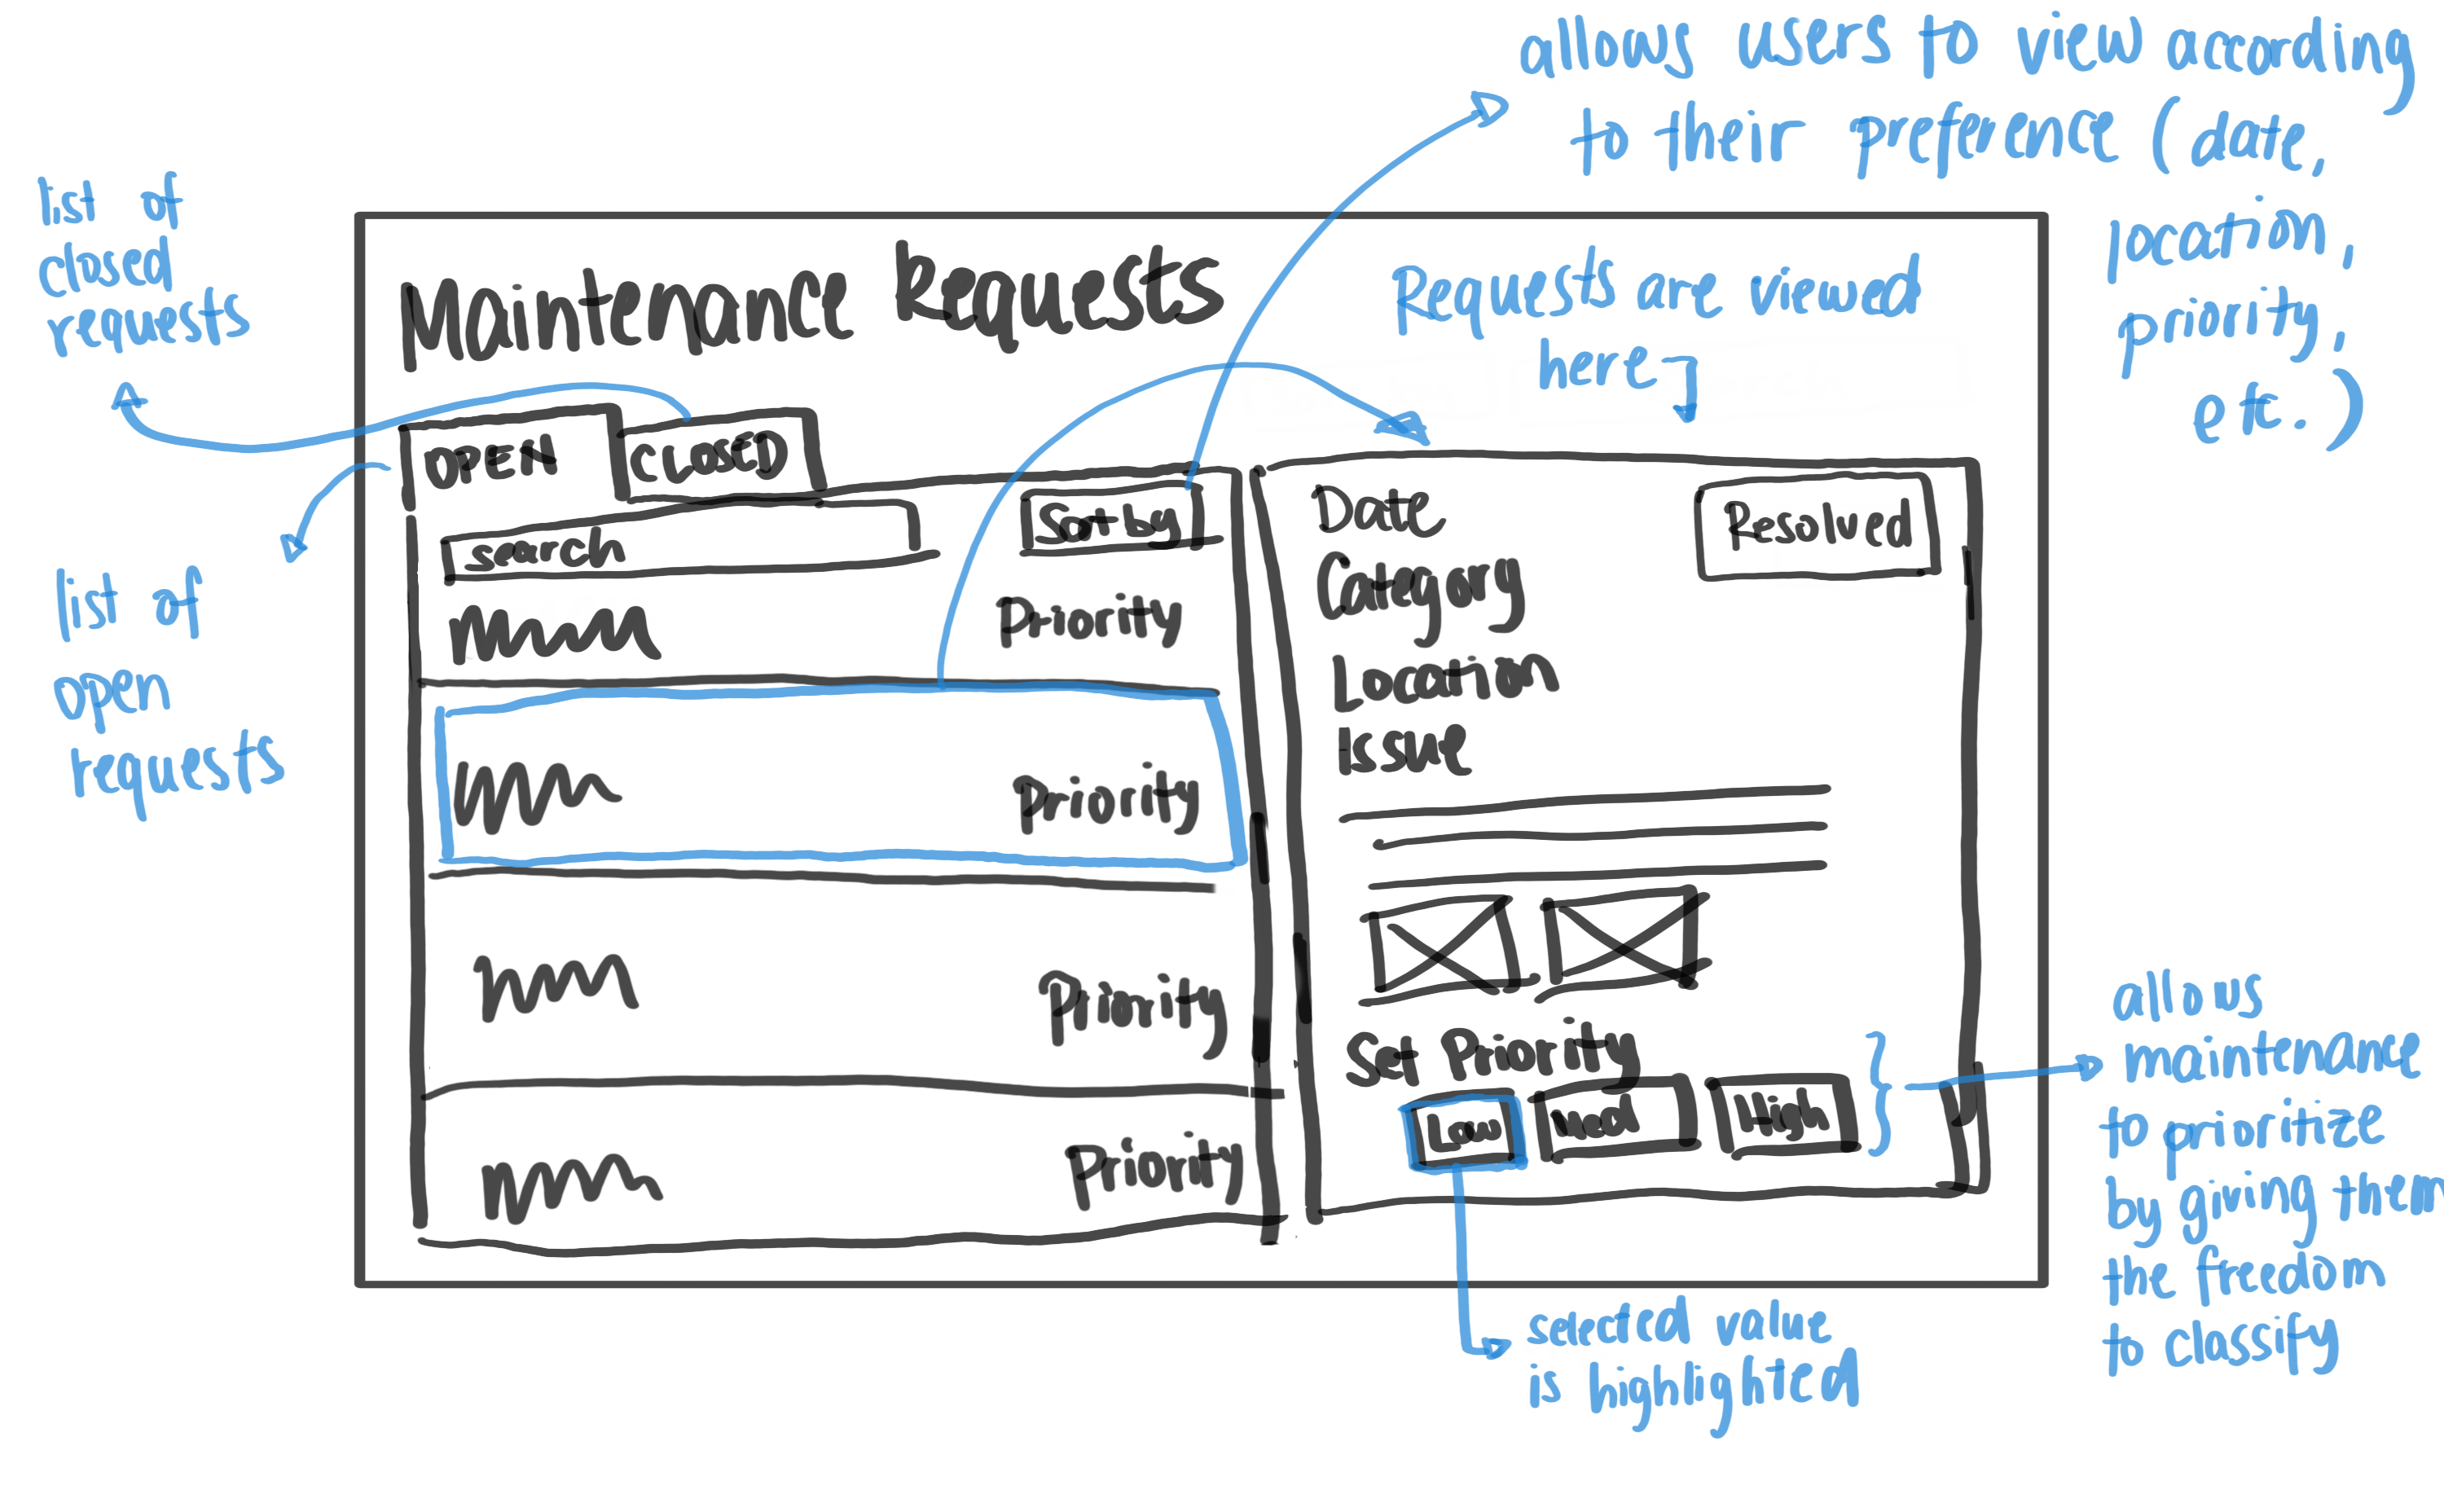 allows users to view according
to their preference (date,
location,
priority,
etc.)
list of
closed
requests
Maintenance Requests
Requests are viewed
here
OPEN
CLOSED
search
Sort by
Priority
Priority
Priority
Priority
list of
open
requests
Date
Resolved
Category
Location
Issue
Set Priority
Low
Med
High
allows
maintenance
to prioritize
by giving them
the freedom
to classify
selected value
is highlighted